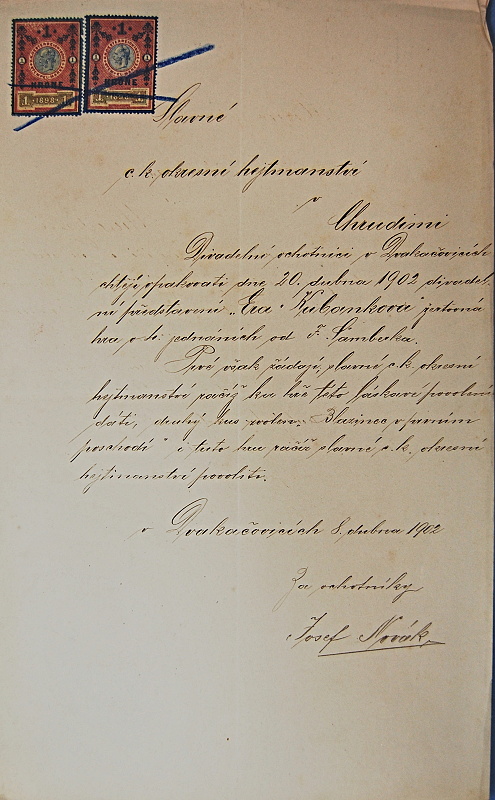 1 1
KRONE KRONE
1 1898 1 1 1898 1
Slavné
c. k. okresní hejtmanství
v
Chrudimi
Divadelní ochotníci v Dvakačovicích
chtějí opakovati dne 20. dubna 1902 divadel-
ní představení „Eva Kubanková" žertovná
hra o 4. jednáních od F. Šamberka.
Prvé však žádají, slavné c. k. okresní
hejtmanství račiž ku hře této láskavé povolení
dáti, druhý kus zvolen: Blázinec v prvním
poschodí" i tuto hru račiž slavné c. k. okresní
hejtmanství povoliti.
v Dvakačovicích 8. dubna 1902
Za ochotníky
Josef Novák